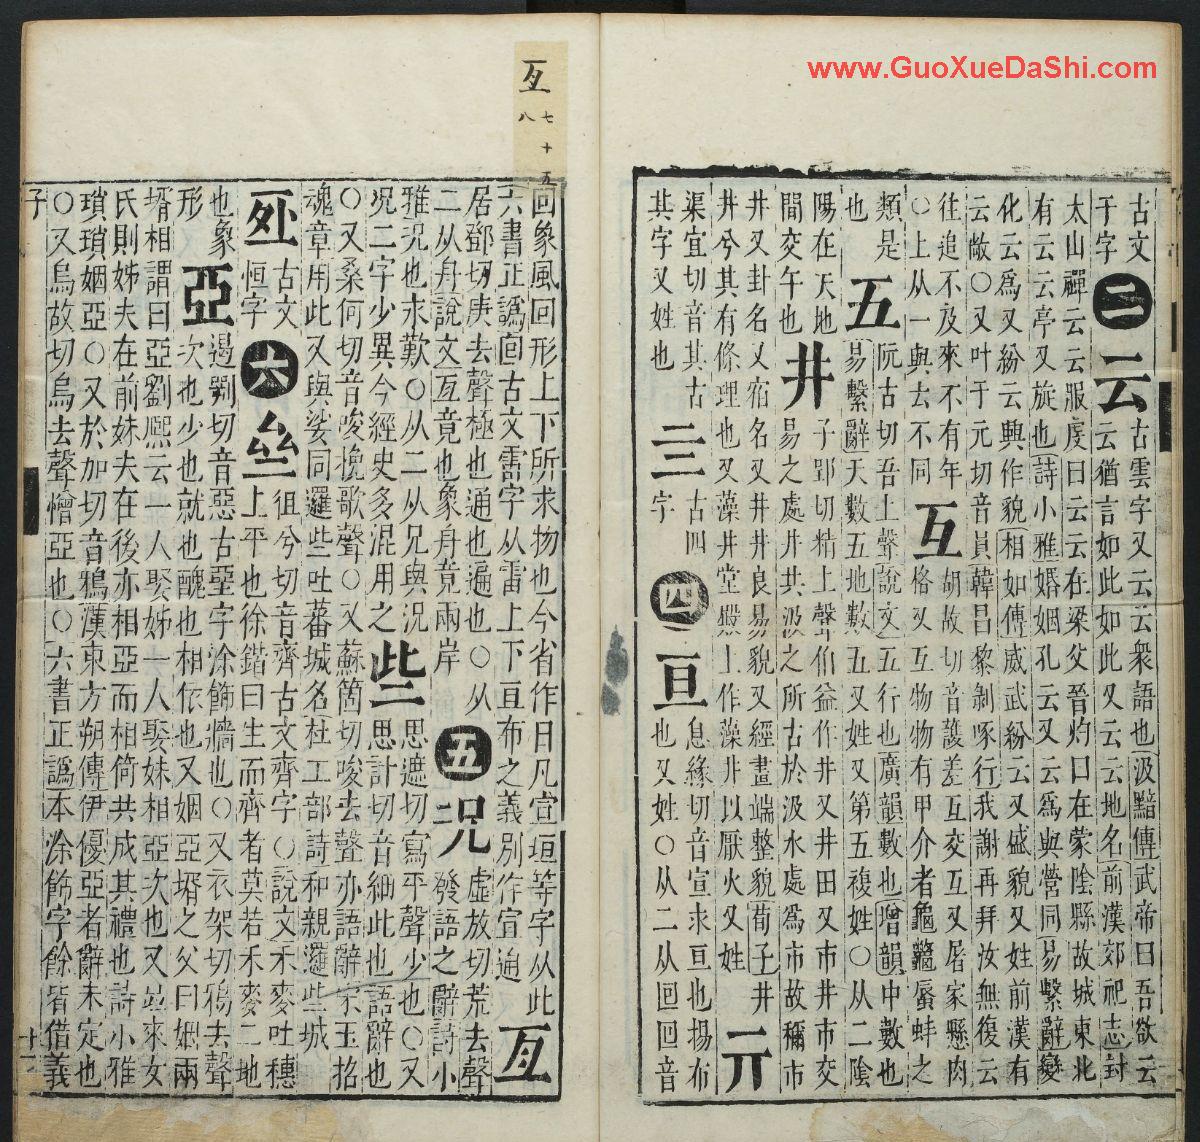 www.GuoXueDaShi.com
古文
于字
二
云
古雲字又云云衆語也汲黯傳武帝曰吾欲云
云猶言如此如此又云云地名前漢郊祀志封
太山禪云云服虔曰云云在梁父晉灼曰在蒙陰縣故城東北
有云云亭又旋也詩小雅婚姻孔云又云爲與營同易繫辭變
化云爲又紛云興作貌相如傳威武紛云又盛貌又姓前漢有
云敞○又叶于元切音員韓昌黎剝啄行我謝再拜汝無復云
往追不及來不有年
○上从一與去不同
互
胡故切音護差互交互又屠家懸肉
格又互物物有甲介者龜鼈蜃蚌之
類是
也
五
阮古切吾上聲說文五行也廣韻數也增韻中數也
易繫辭天數五地數五又姓又第五複姓○从二陰
陽在天地
間交午也
井
子郢切精上聲伯益作井又井田又市井市交
易之處井共汲之所古於汲水處爲市故稱市
井又卦名又宿名又井井良易貌又經畫端整貌荀子井
井兮其有條理也又藻井堂殿上作藻井以厭火又姓
亓
渠宜切音其古
其字又姓也
亖
古四
字
四
亘
息緣切音宣求亘也揚布
也又姓○从二从囘回音
回象風回形上下所求物也今省作日凡宣垣等字从此
六書正譌囘古文雷字从雷上下亘布之義別作宣逈
亙
居鄧切庚去聲極也通也遍也○从
二从舟說文亙竟也象舟竟兩岸
五
况
虛放切荒去聲
發語之辭詩小
雅况也永歎○从二从兄與况
况二字少異今經史多混用之
些
思遮切寫平聲少也○又
思計切音細此也語辭也
○又桑何切音唆挽歌聲○又蘇箇切唆去聲亦語辭宋玉招
魂章用此又與娑同邏些吐蕃城名杜工部詩和親邏些城
𠄨
古文
恒字
六
亝
徂兮切音齊古文齊字○說文禾麥吐穗
上平也徐鍇曰生而齊者莫若禾麥二地
也象
形
亞
遏鄂切音惡古堊字涂飾牆也○又衣架切鴉去聲
次也少也就也醜也相依也又姻亞壻之父曰姻兩
壻相謂曰亞劉熙云一人娶姊一人娶妹相亞次也又竝來女
氏則姊夫在前妹夫在後亦相亞而相倚共成其禮也詩小雅
瑣瑣姻亞○又於加切音鴉漢東方朔傳伊優亞者辭未定也
○又烏故切烏去聲憎亞也○六書正譌本涂飾字餘皆借義
子
亙
七十五
八